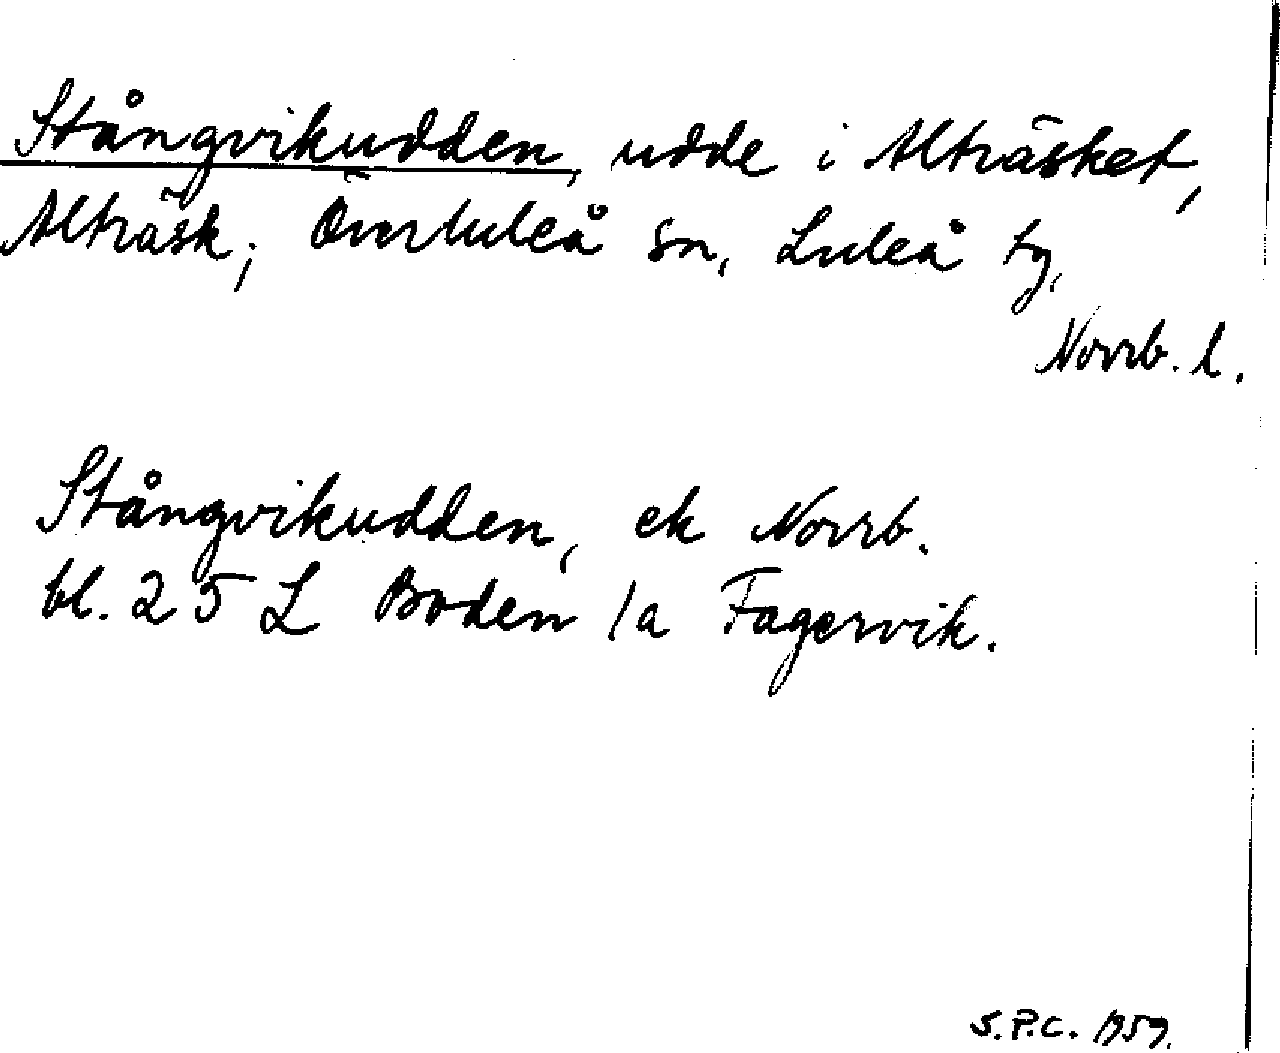 Stångvikudden, udde i Alträsket,
Alträsk; Överluleå sn, Luleå tg,
Norrb. l.
Stångvikudden, ek Norrb.
bl. 25 L Boden /a Fagervik.
S.P.C. 1959.